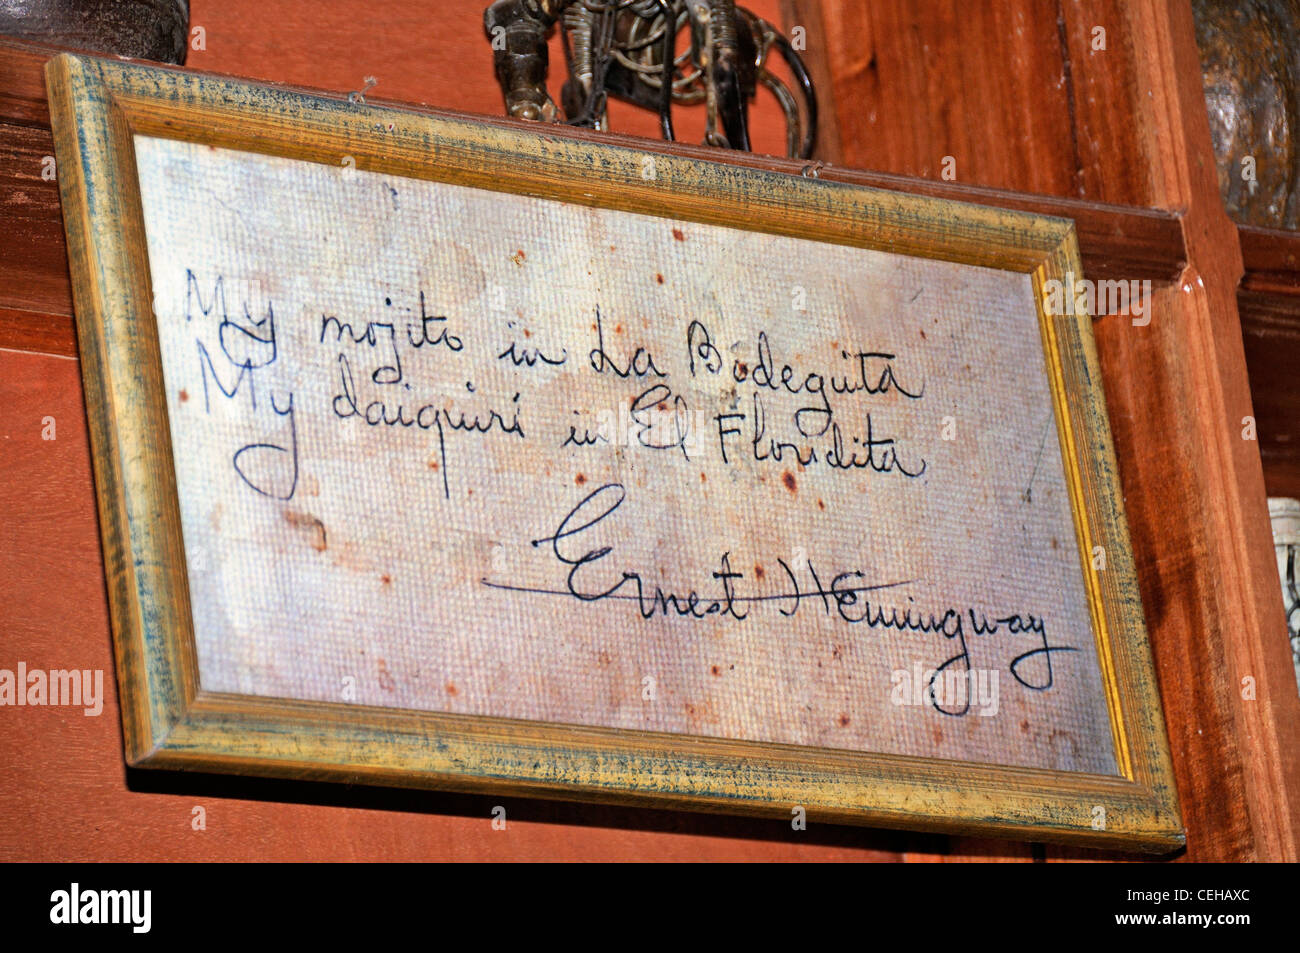 My mojito in La Bodeguita
My daiquiri in El Floridita
Ernest Hemingway
alamy
Image ID: CEHAXC
www.alamy.com